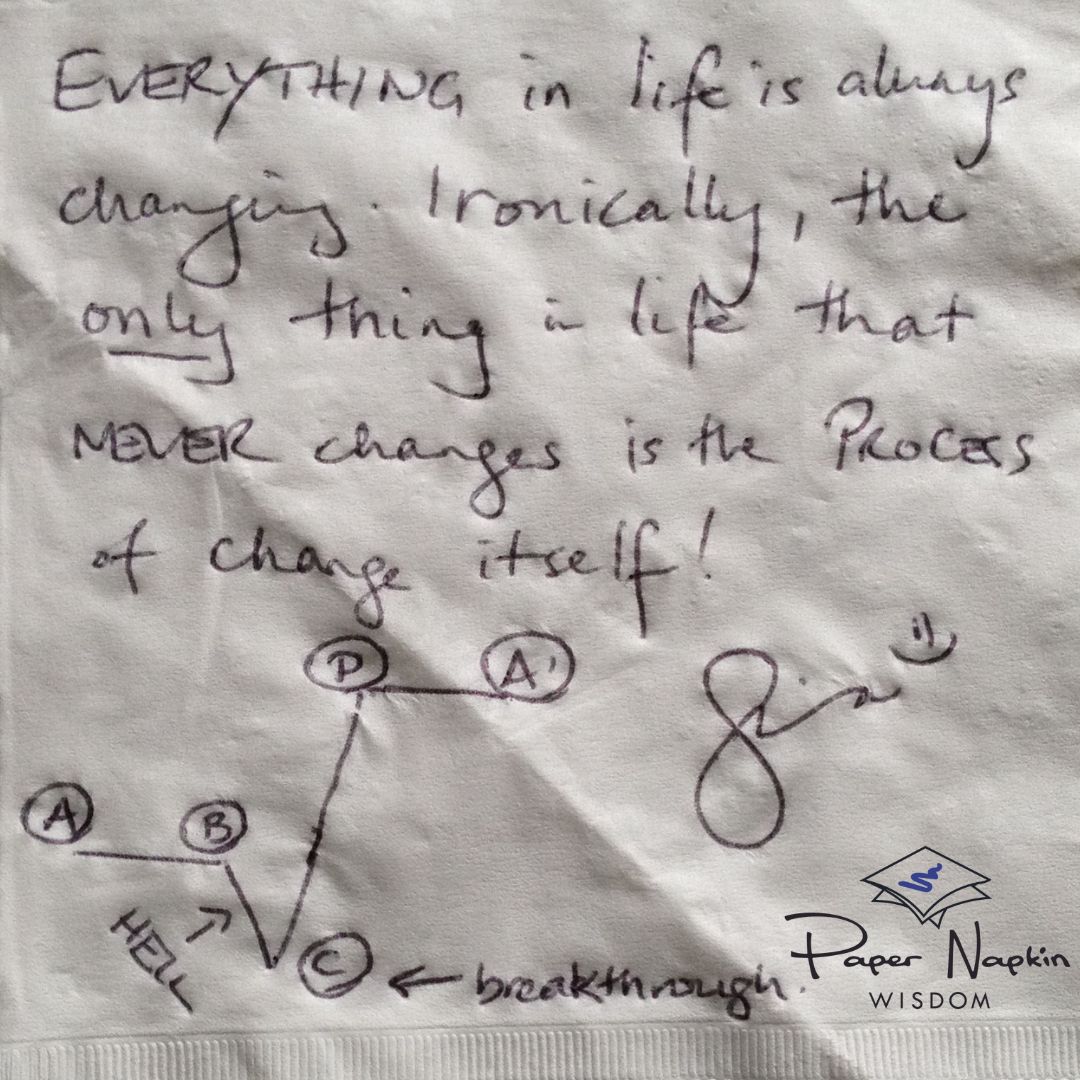 EVERYTHING in life is always
changing. Ironically, the
only thing in life that
NEVER changes is the PROCESS
of change itself!
P A'
A B
HELL
C ← breakthrough.
Paper Napkin
WISDOM